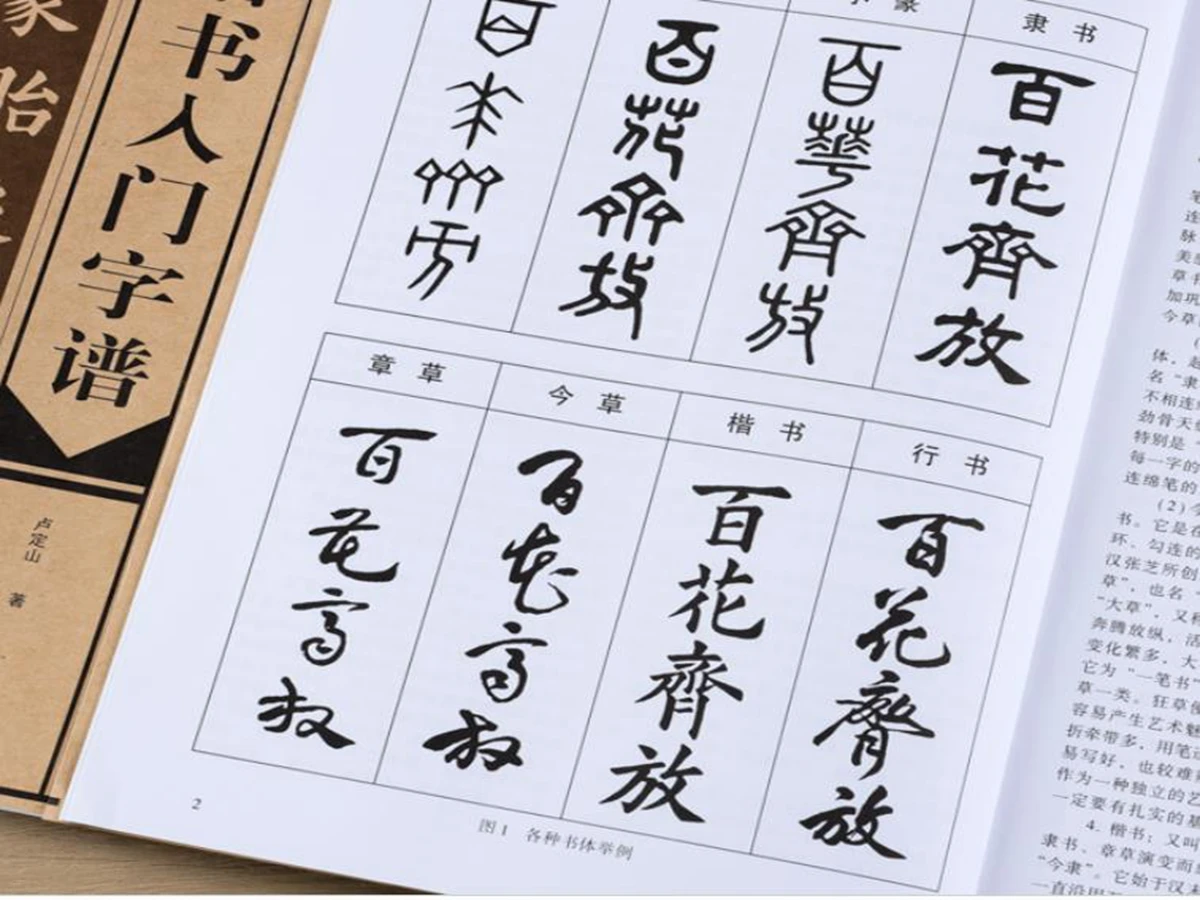 书入门字谱
卢定山 著
小篆
隶书
百花齊放
百花齊放
百花齊放
百花齊放
章草
今草
楷书
行书
百花齊放
百花齊放
百花齊放
百花齊放
2
图1 各种书体举例
加巩
今草
体，
名“隶
不相连
劲骨天
特别是
每一字的
连绵笔的
(2)
书。它是在
环、勾连的
汉张芝所创
草”，也名
“大草”，又称
奔腾放纵，活
变化繁多，大
它为“一笔书”
草一类。狂草
容易产生艺术魅
折牵带多，用笔
易写好，也较难
作为一种独立的艺
一定要有扎实的基
4. 楷书：又叫
隶书、章草演变而
“今隶”。它始于汉末
一直沿用